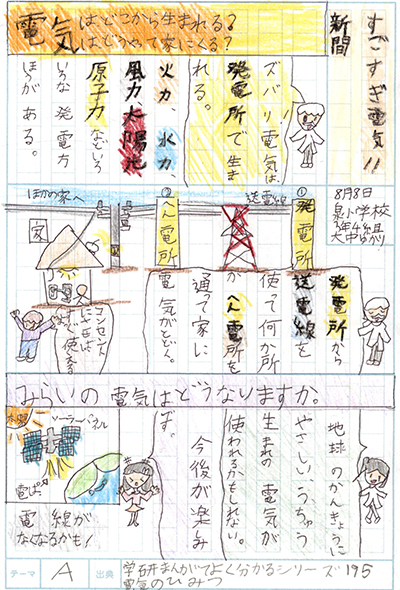 すごすぎ電気!!
新聞
電気はどこから生まれる?
はどうやって家にくる?
ズバリ電気は、
発電所で生ま
れる。
火力、水力、
風力、太陽池
原子力などいろ
いろな発電方
ほうがある。
8月8日
泉小学校
年4組
ほかの家へ
送電線
①発電所
②へん電所
家
発電所から
送電線を
使って何か所
かへん電所を
通って家に
電気がとどく。
コンセント
にさせば
すぐ使える
みらいの電気はどうなりますか。
地球のかんきょうに
やさしい、うちゅう
生まれの電気が
使われるかもしれない。
今後が楽しみ
です。
太陽
ソーラーパネル
電ぱ
電線が
なくなるかも!
テーマ A
出典 学研まんがでよく分かるシリーズ195
電気のひみつ